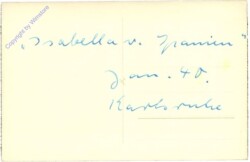 Copyright by
„Isabella v. Spanien"
Jan. 40.
Karlsruhe